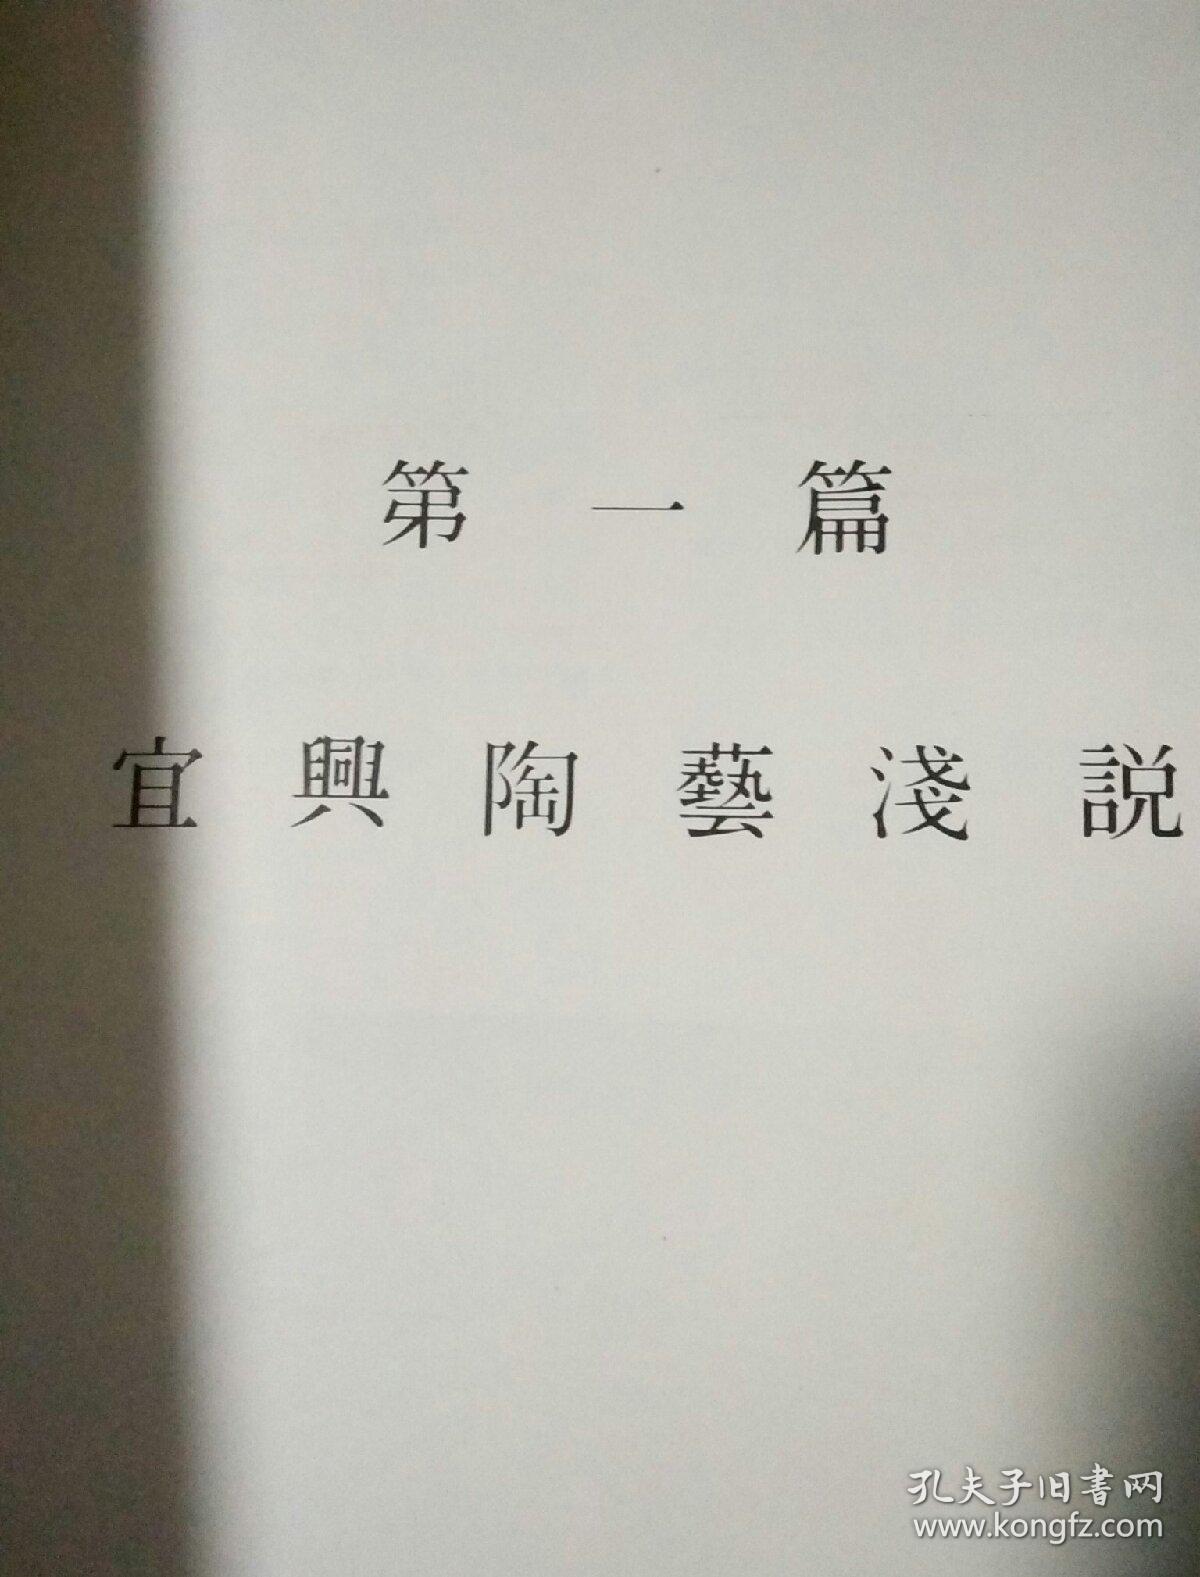 第一篇
宜興陶藝淺説
孔夫子旧书网
www.kongfz.com